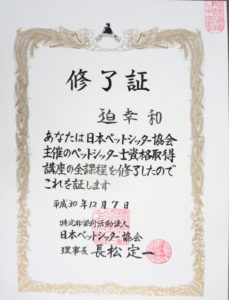 修了証
迫幸和
あなたは日本ペットシッター協会
主催のペットシッター士資格取得
講座の全課程を修了したので
これを証します
平成30年12月7日
特定非営利活動法人
日本ペットシッター協会
理事長 長松定一